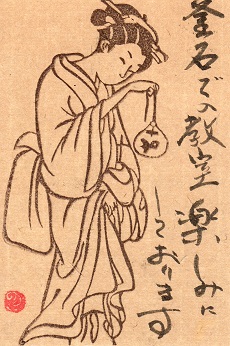 釜石での教室楽しみに
しております